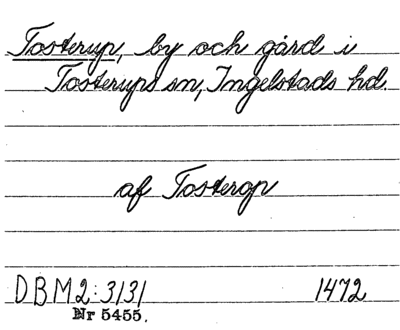 Tosterup, by och gård i
Tosterups sn, Ingelstads hd.
af Tosterop
DBM2:3131 1472
Nr 5455.